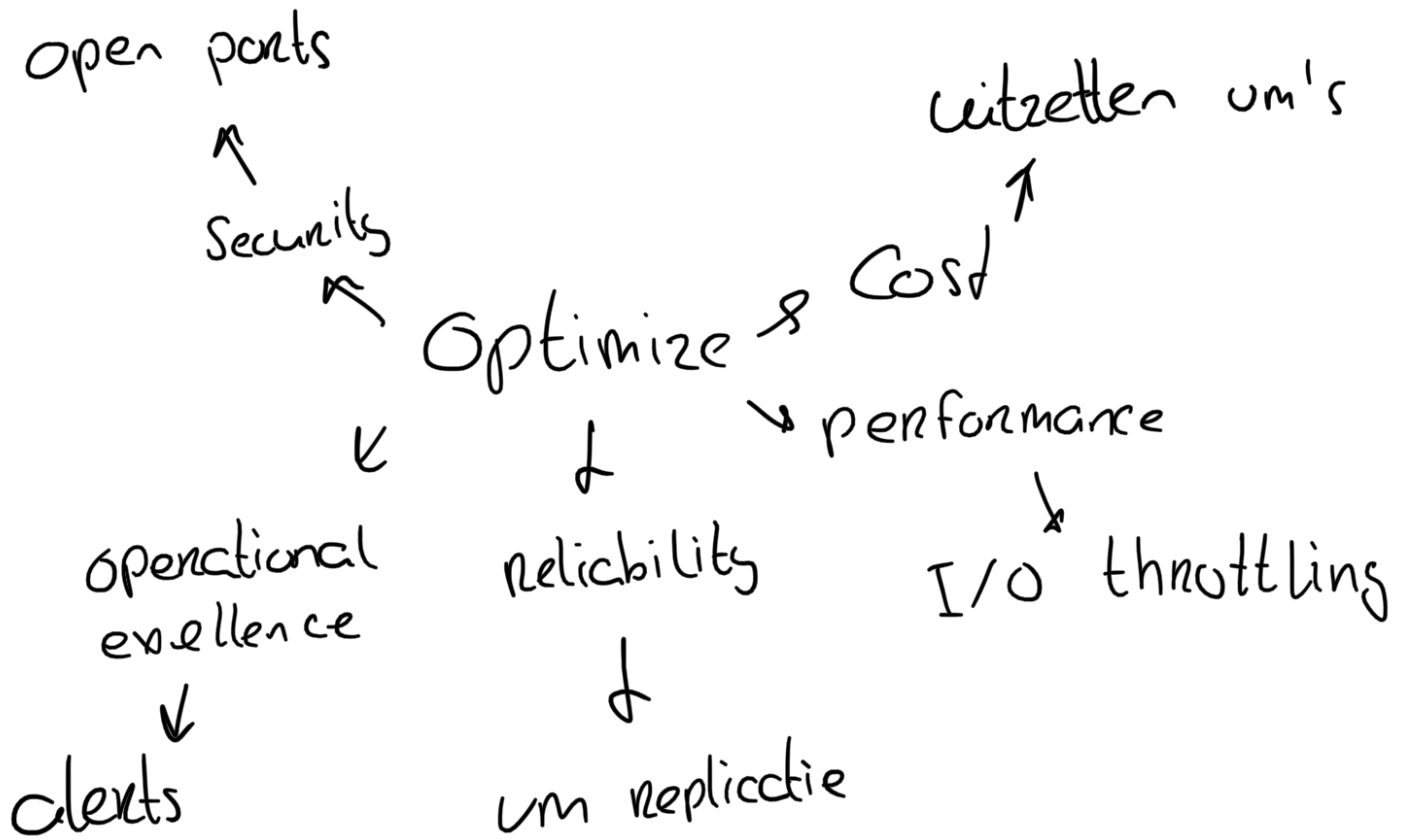 open ports
uitzetten vm's
Security
Cost
Optimize
performance
operational
exellence
reliability
I/O throttling
alerts
vm replicatie